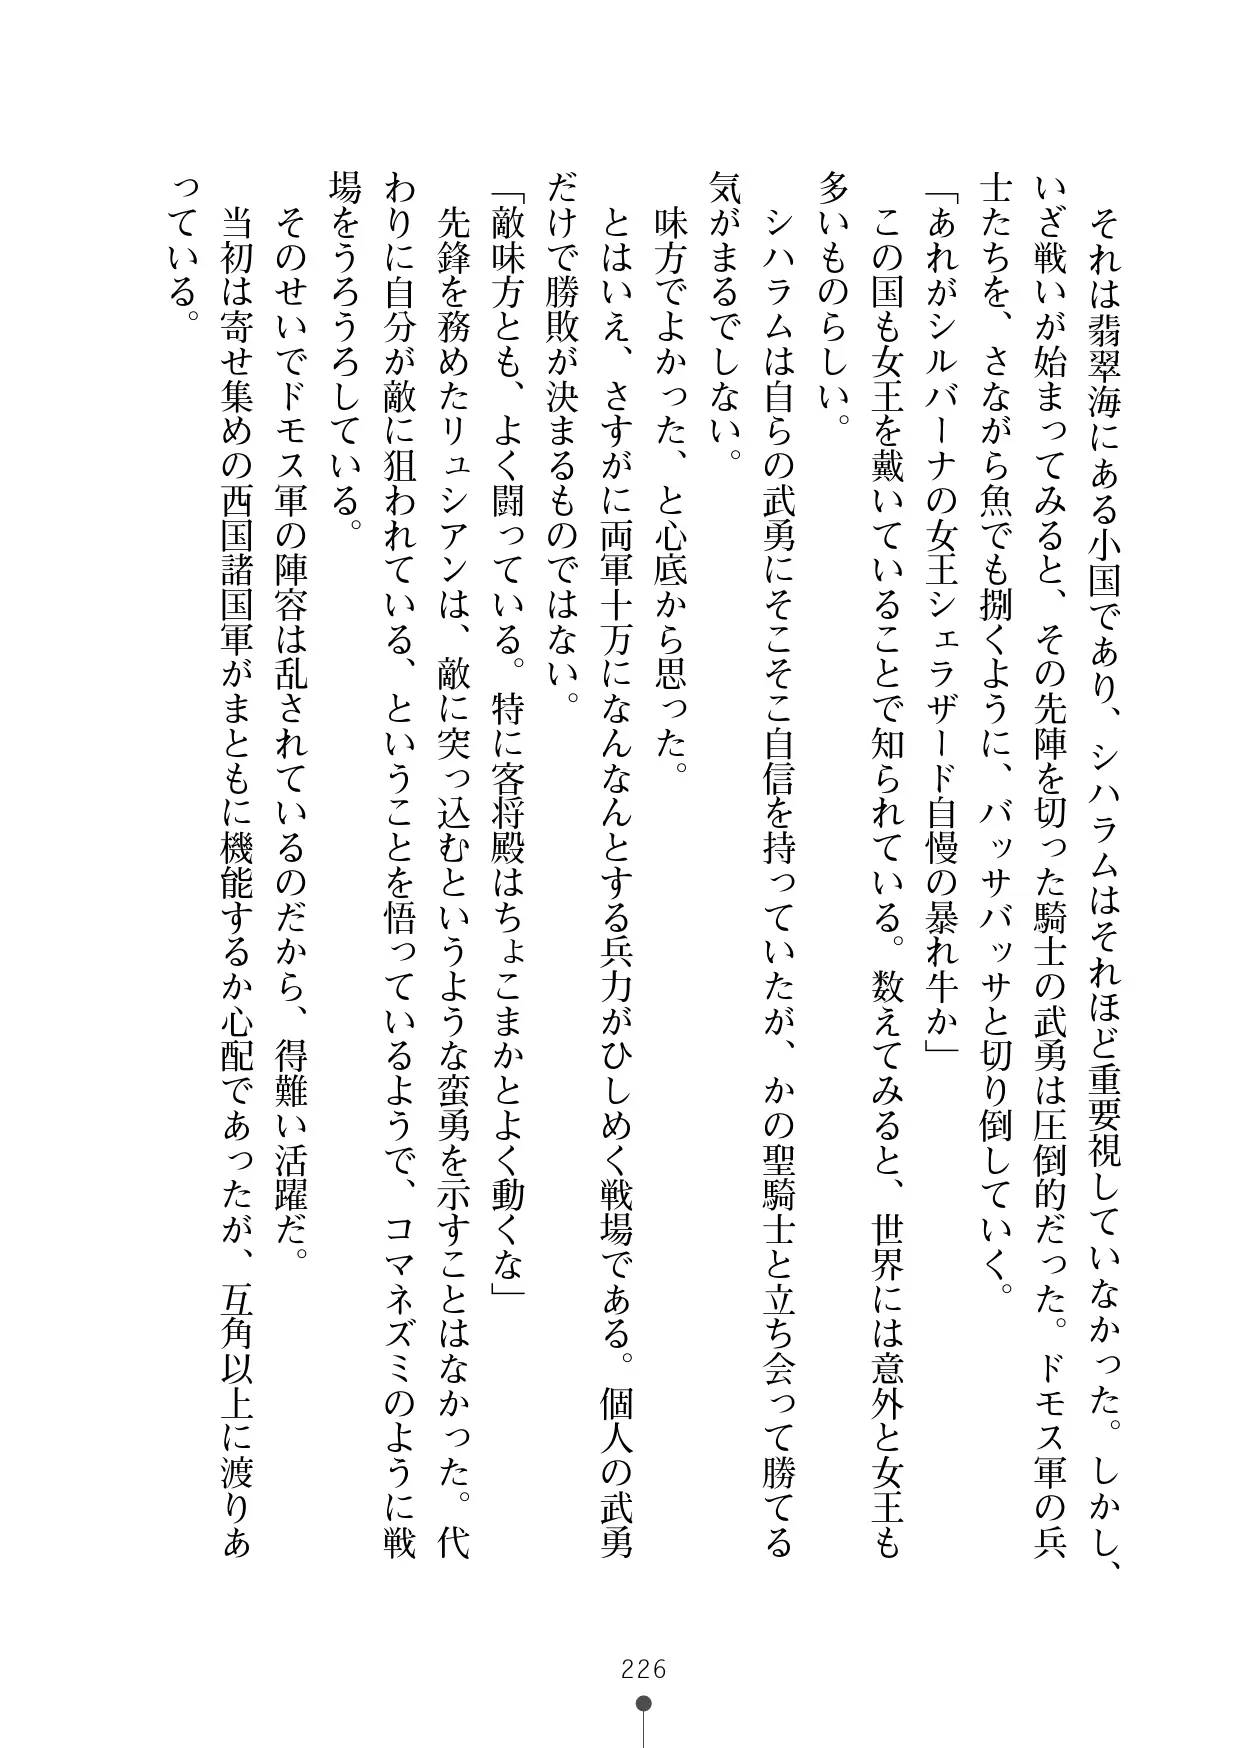 それは翡翠海にある小国であり、シハラムはそれほど重要視していなかった。しかし、
いざ戦いが始まってみると、その先陣を切った騎士の武勇は圧倒的だった。ドモス軍の兵
士たちを、さながら魚でも捌くように、バッサバッサと切り倒していく。
「あれがシルバーナの女王シェラザード自慢の暴れ牛か」
　この国も女王を戴いていることで知られている。数えてみると、世界には意外と女王も
多いものらしい。
　シハラムは自らの武勇にそこそこ自信を持っていたが、かの聖騎士と立ち会って勝てる
気がまるでしない。
　味方でよかった、と心底から思った。
　とはいえ、さすがに両軍十万になんなんとする兵力がひしめく戦場である。個人の武勇
だけで勝敗が決まるものではない。
「敵味方とも、よく闘っている。特に客将殿はちょこまかとよく動くな」
　先鋒を務めたリュシアンは、敵に突っ込むというような蛮勇を示すことはなかった。代
わりに自分が敵に狙われている、ということを悟っているようで、コマネズミのように戦
場をうろうろしている。
　そのせいでドモス軍の陣容は乱されているのだから、得難い活躍だ。
　当初は寄せ集めの西国諸国軍がまともに機能するか心配であったが、互角以上に渡りあ
っている。
226